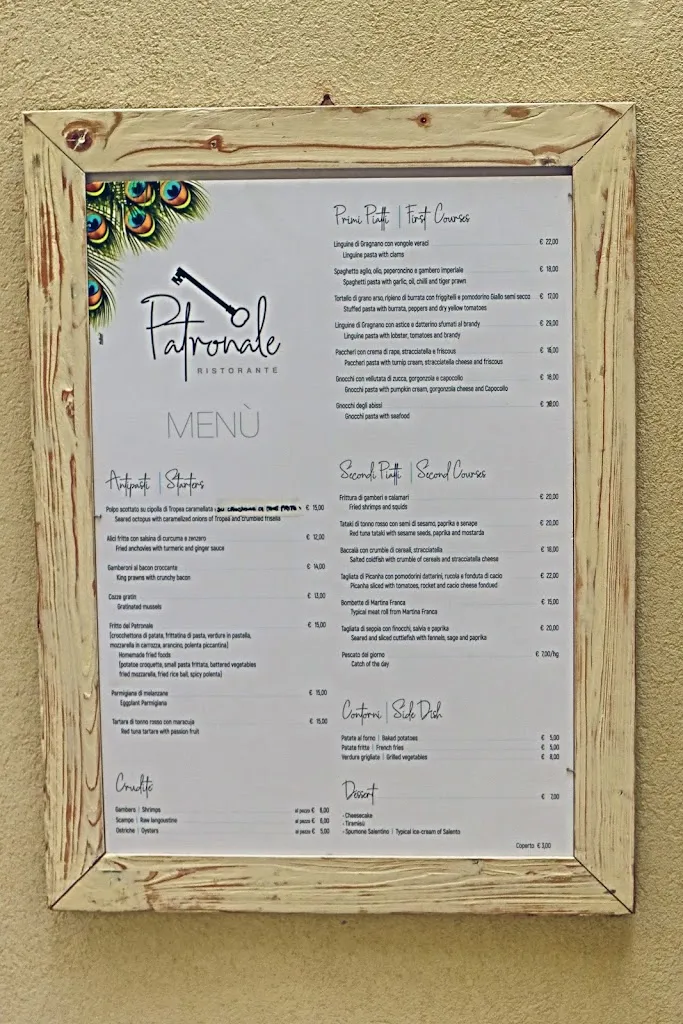 Patronale
RISTORANTE
MENÙ
Antipasti | Starters
Polpo scottato su cipolla di Tropea caramellata € 15,00
Seared octopus with caramelized onions of Tropea and crumbled frisella
Alici fritte con salsina di curcuma e zenzero € 12,00
Fried anchovies with turmeric and ginger sauce
Gamberoni al bacon croccante € 14,00
King prawns with crunchy bacon
Cozze gratin € 13,00
Gratinated mussels
Fritto del Patronale € 15,00
(crocchettona di patate, frittatina di pasta, verdure in pastella,
mozzarella in carrozza, arancino, polenta piccantina)
Homemade fried foods
(potatoe croquette, small pasta frittata, battered vegetables
fried mozzarella, fried rice ball, spicy polenta)
Parmigiana di melanzane € 15,00
Eggplant Parmigiana
Tartara di tonno rosso con maracuja € 15,00
Red tuna tartare with passion fruit
Crudité
Gambero | Shrimps al pezzo € 8,00
Scampo | Raw langoustine al pezzo € 6,00
Ostriche | Oysters al pezzo € 5,00
Primi Piatti | First Courses
Linguine di Gragnano con vongole veraci € 22,00
Linguine pasta with clams
Spaghetto aglio, olio, peperoncino e gambero imperiale € 18,00
Spaghetti pasta with garlic, oil, chilli and tiger prawn
Tortello di grano arso, ripieno di burrata con friggitelli e pomodorino Giallo semi secco € 17,00
Stuffed pasta with burrata, peppers and dry yellow tomatoes
Linguine di Gragnano con astice e datterino sfumati al brandy € 29,00
Linguine pasta with lobster, tomatoes and brandy
Paccheri con crema di rape, stracciatella e friscous € 16,00
Paccheri pasta with turnip cream, stracciatella cheese and friscous
Gnocchi con vellutata di zucca, gorgonzola e capocollo € 18,00
Gnocchi pasta with pumpkin cream, gorgonzola cheese and Capocollo
Gnocchi degli abissi €
Gnocchi pasta with seafood
Secondi Piatti | Second Courses
Frittura di gamberi e calamari € 20,00
Fried shrimps and squids
Tataki di tonno rosso con semi di sesamo, paprika e senape € 20,00
Red tuna tataki with sesame seeds, paprika and mostarda
Baccalà con crumble di cereali, stracciatella € 18,00
Salted coldfish with crumble of cereals and stracciatella cheese
Tagliata di Picanha con pomodorini datterini, rucola e fonduta di cacio € 22,00
Picanha sliced with tomatoes, rocket and cacio cheese fondued
Bombette di Martina Franca € 15,00
Typical meat roll from Martina Franca
Tagliata di seppia con finocchi, salvia e paprika € 20,00
Seared and sliced cuttlefish with fennels, sage and paprika
Pescato del giorno € 7,00/hg
Catch of the day
Contorni | Side Dish
Patate al forno | Baked potatoes € 5,00
Patate fritte | French fries € 5,00
Verdure grigliate | Grilled vegetables € 8,00
Dessert € 7,00
- Cheesecake
- Tiramisù
- Spumone Salentino | Typical ice-cream of Salento
Coperto € 3,00